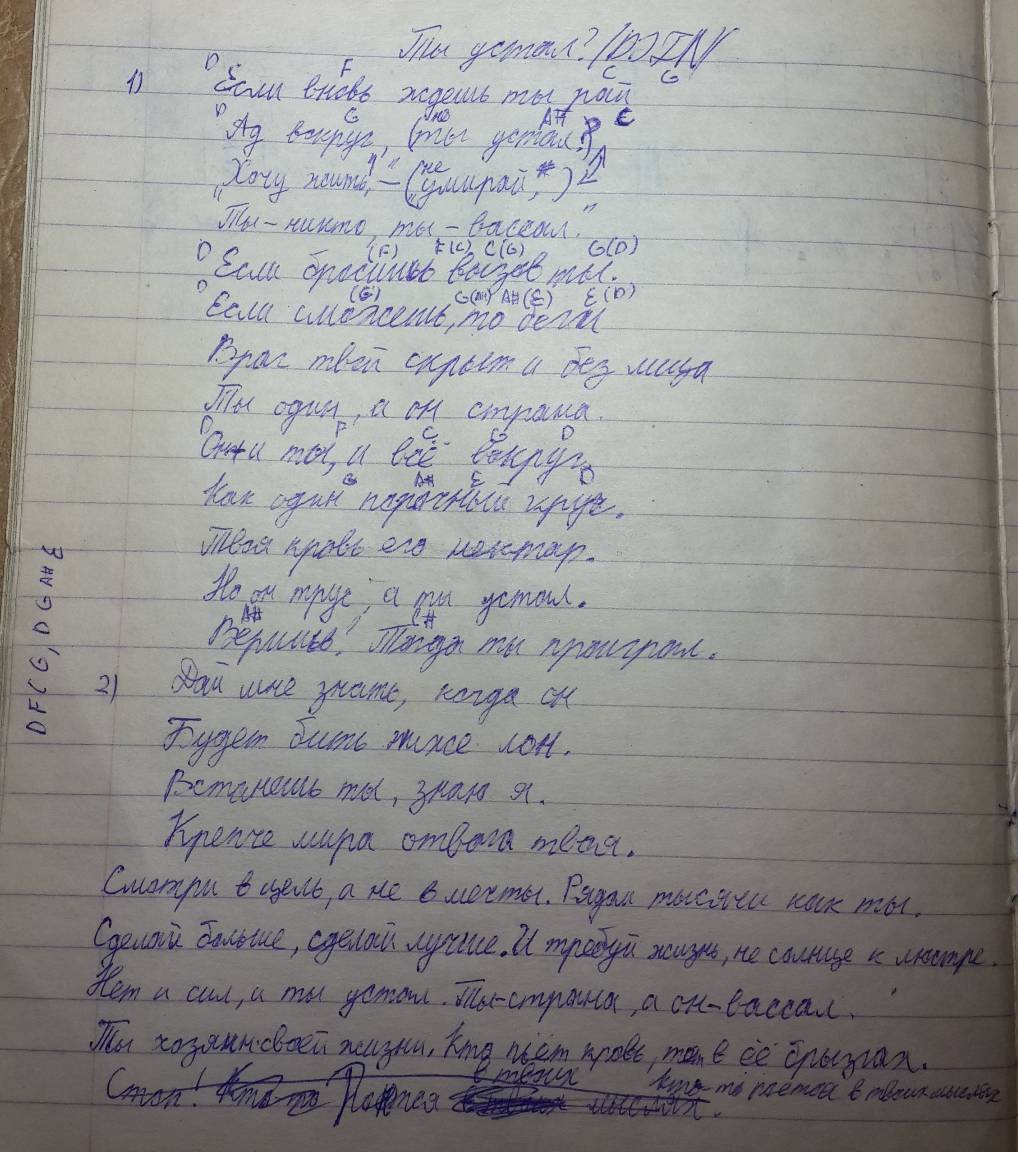 Ты устал? (DJIN)
D E F C G
1) Если вновь ждешь ты рай
D G но A# E
Ад вокруг, (ты устал?)
"Хочу жить," – ("не умирай,")
Ты – никто, ты – вассал."
D (F) F(C) C(G) G(D)
Если бросишь вызов ты.
D (G) G(A#) A#(E) E(D)
Если сможешь, то беги
Враг твой скрыт и без лица
Ты один, а он страна.
D F C G D
Он и ты, и всё вокруг
G A# E D
Как один порочный круг.
Твоя кровь его нектар.
Но он трус, а ты устал.
A# C#
Веришь? Тогда ты проиграл.
DFCG, DGA#E
2) Дай мне знать, когда он
Будет бить ниже лон.
Встанешь ты, знаю я.
Крепче мира отвага твоя.
Смотри в цель, а не в мечты. Рядом тысячи как ты.
Сделай больше, сделай лучше. И требуй жизнь, не солнце к люстре.
Нет и сил, и ты устал. Ты-страна, а он-вассал.
Ты хозяин своей жизни. Кто пьёт кровь, тот в её брызгах.
в твоих Кто-то роется в твоих мыслях
Стоп! Кто-то мыслях.